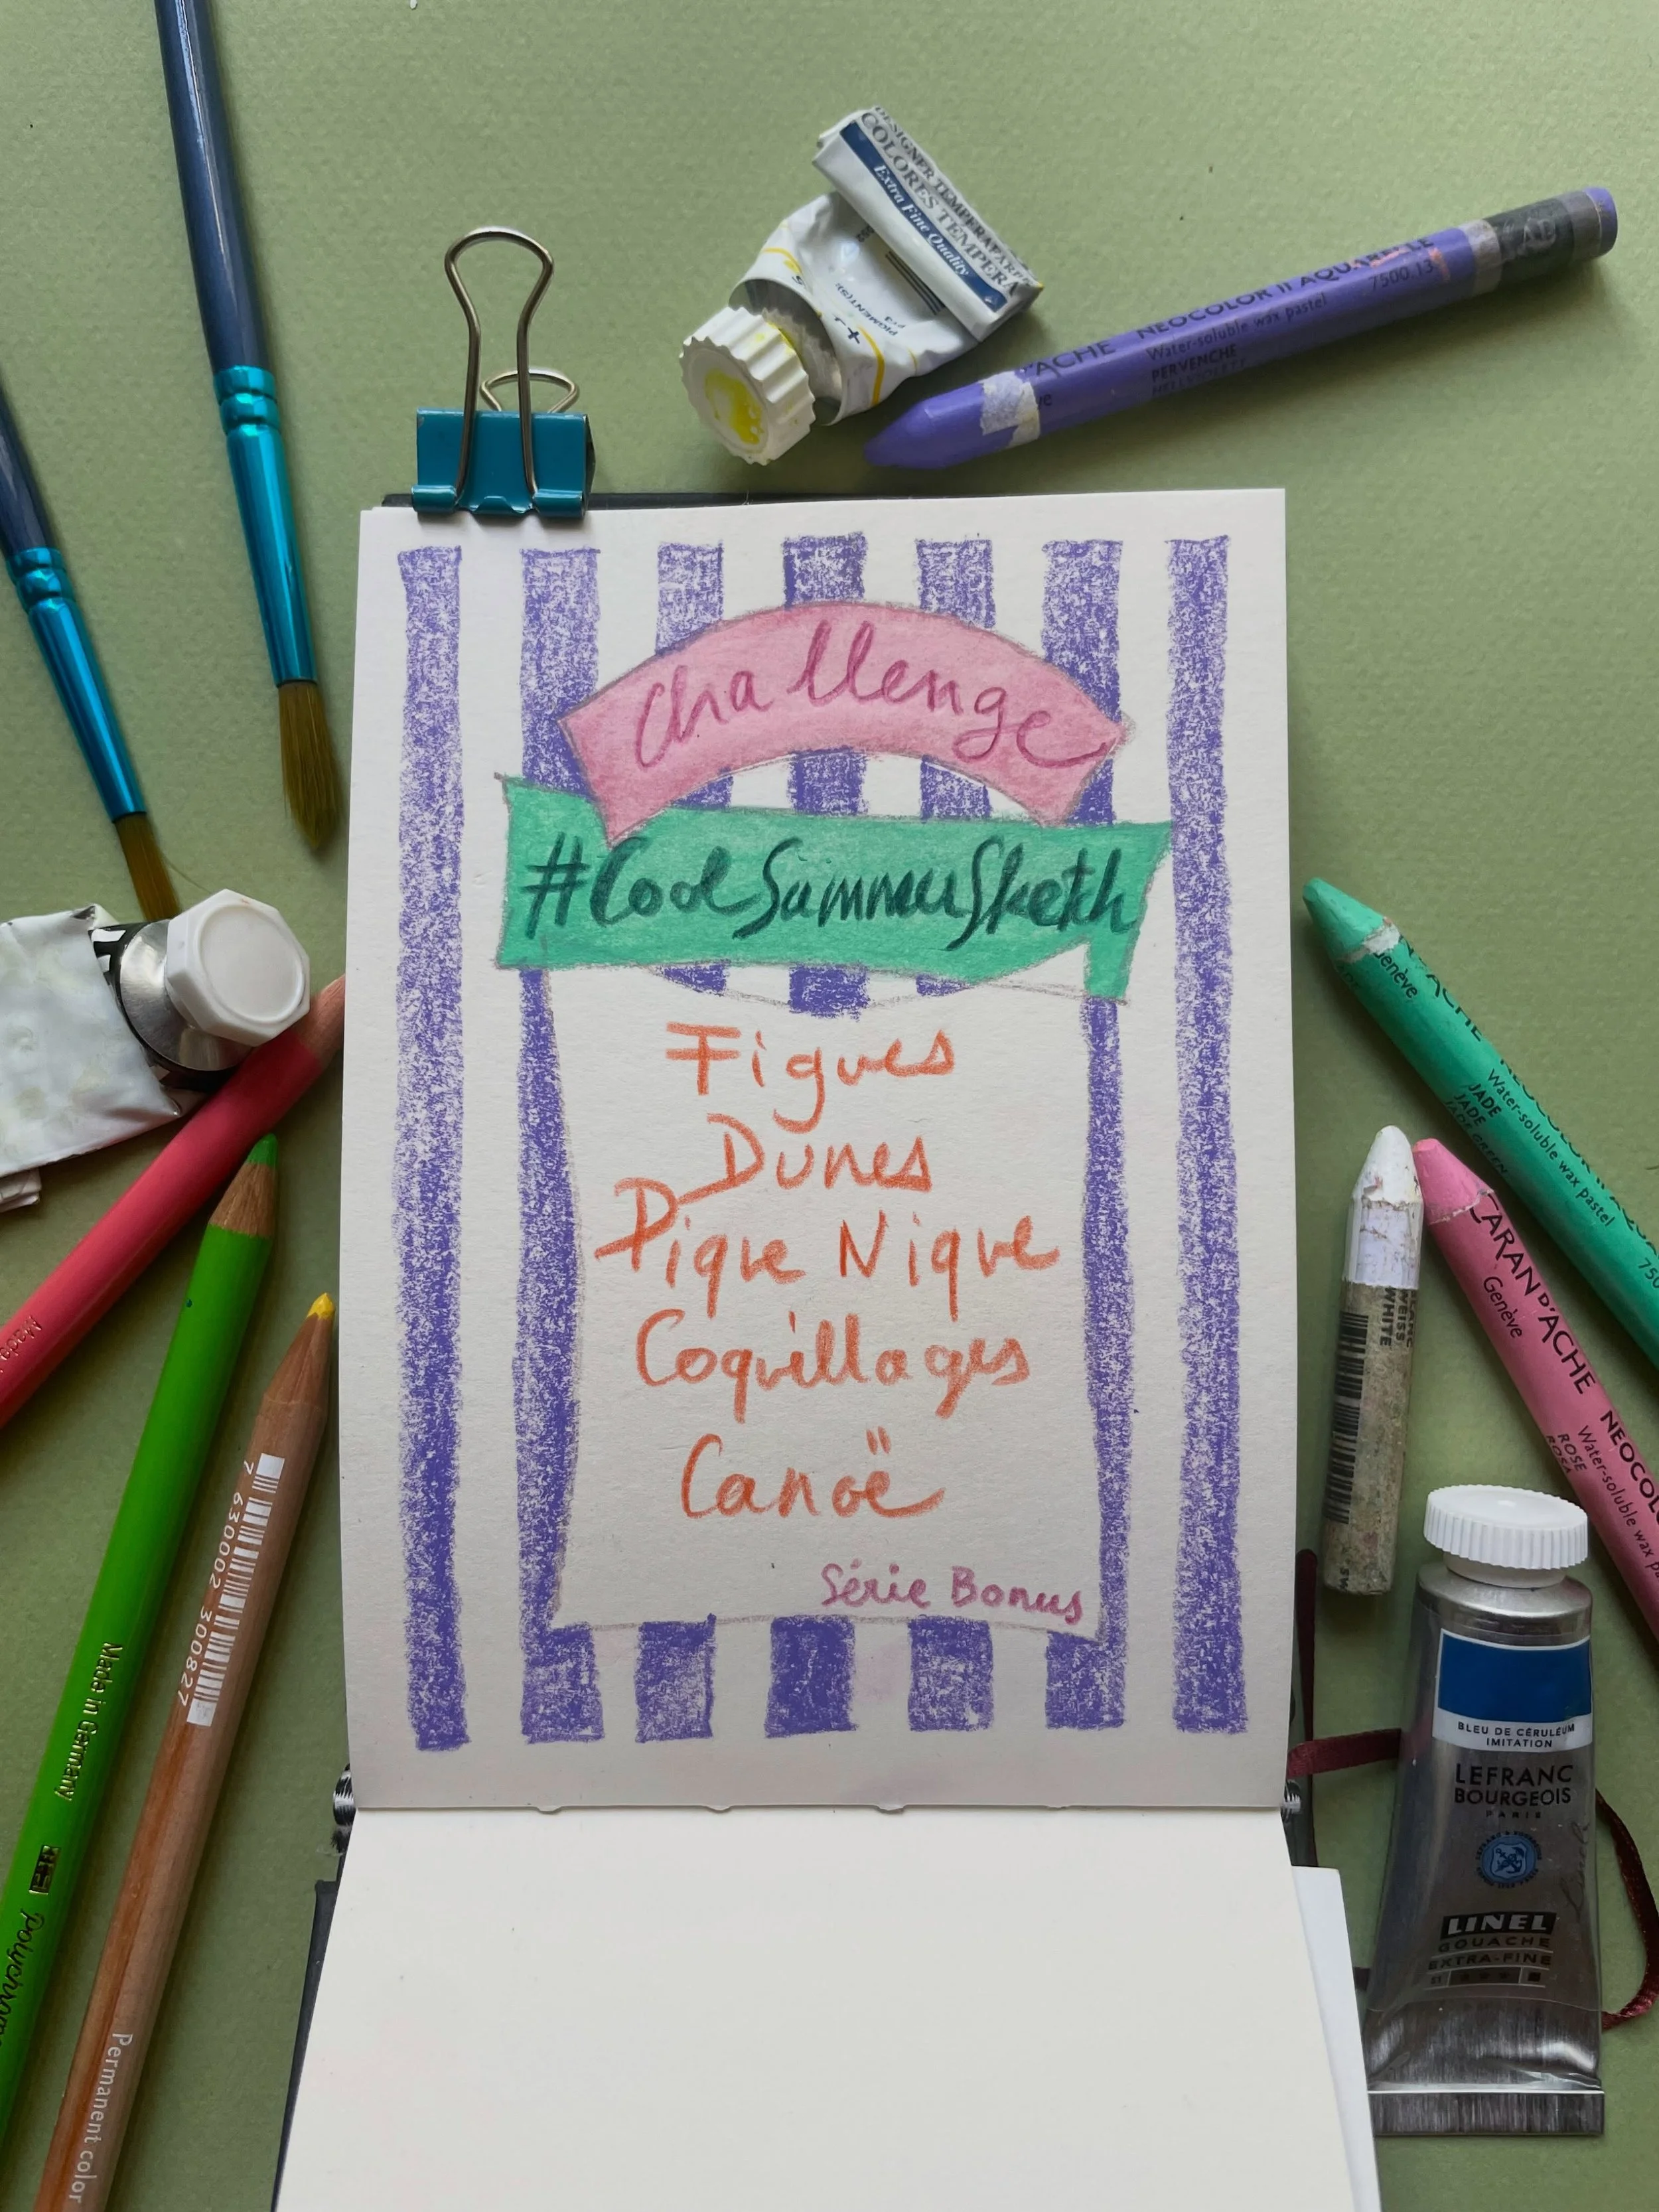 DESIGNER TEMPERA
COLORES TEMPERA
Extra Fine Quality
PIGMENT(S)
D'ACHE NEOCOLOR II AQUARELLE
7500.13
Water-soluble wax pastel
PERVENCHE
Challenge
#CoolSummerSketch
Figues
Dunes
Pique Nique
Coquillages
Canoë
Série Bonus
Genève
Water-soluble wax pastel
JADE
JADE
JADE GREEN
CARAN D'ACHE
Genève
Water-soluble wax
ROSE
ROSA
WEISS
WHITE
BLEU DE CÉRULÉUM
IMITATION
LEFRANC
BOURGEOIS
PARIS
LINEL
GOUACHE
EXTRA-FINE
7 630002 300827
Permanent color
Made in Germany